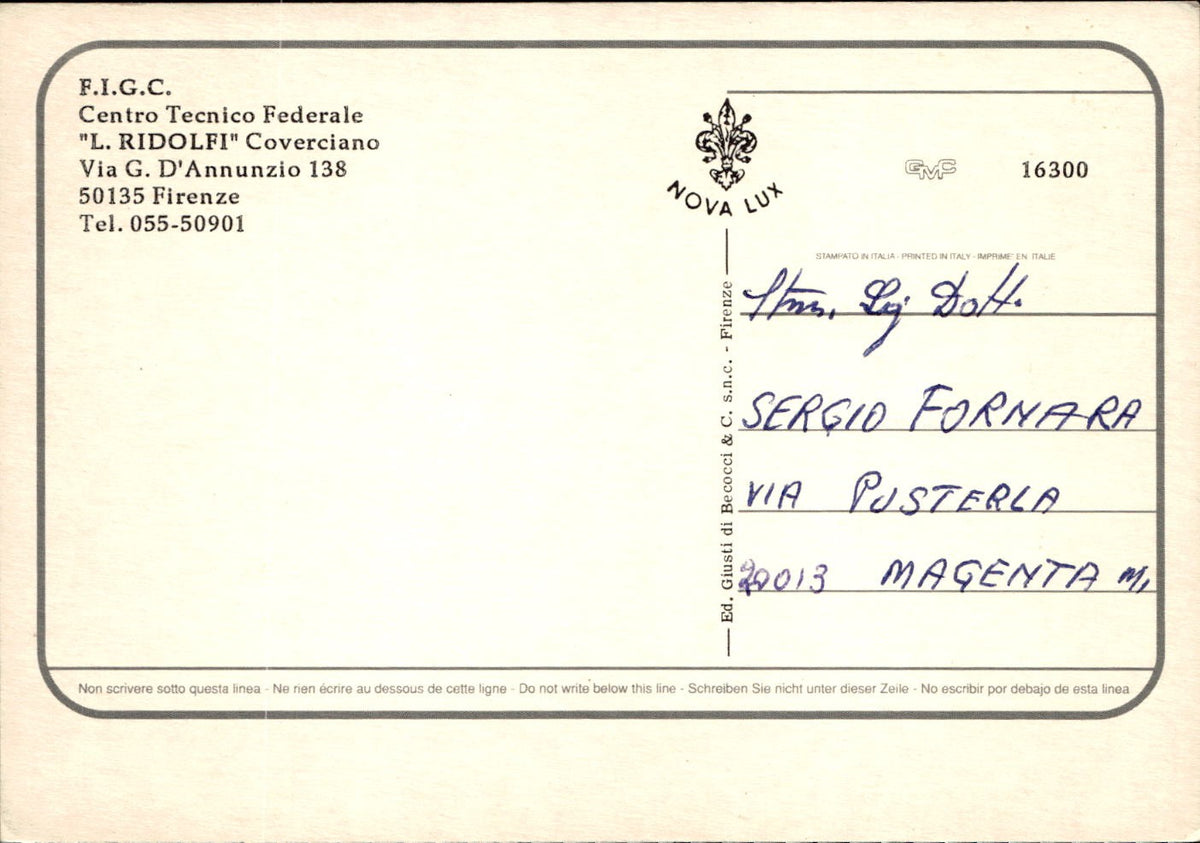 F.I.G.C.
Centro Tecnico Federale
"L. RIDOLFI" Coverciano
Via G. D'Annunzio 138
50135 Firenze
Tel. 055-50901
NOVA LUX
GMC 16300
STAMPATO IN ITALIA - PRINTED IN ITALY - IMPRIME' EN ITALIE
Ed. Giusti di Becocci & C. s.n.c. - Firenze
Sig Dott.
SERGIO FORNARA
VIA PUSTERLA
20013 MAGENTA MI
Non scrivere sotto questa linea - Ne rien écrire au dessous de cette ligne - Do not write below this line - Schreiben Sie nicht unter dieser Zeile - No escribir por debajo de esta linea